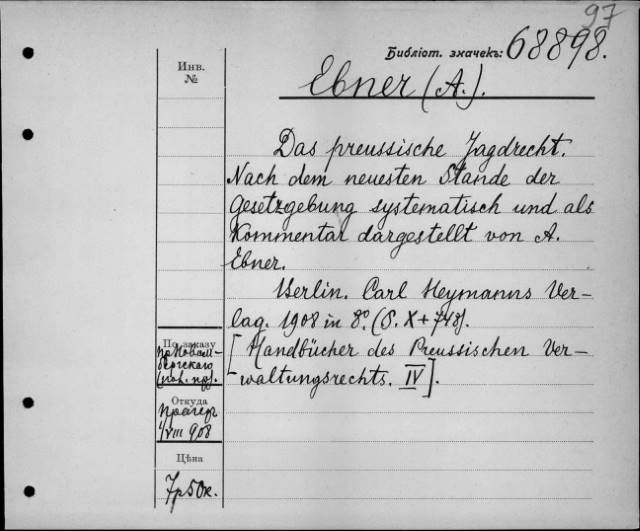 97
Библіот. значекъ: 68898.
Инв.
№
Ebner (A.).
Das preussische Jagdrecht.
Nach dem neuesten Stande der
Gesetzgebung systematisch und als
Kommentar dargestellt von A.
Ebner.
Berlin. Carl Heymanns Ver-
lag. 1908 in 8º. (S. X + 748).
[Handbücher des Preussischen Ver-
waltungsrechts. IV].
По заказу
Откуда
Прагеръ
VIII 908
Цѣна
7р50к.